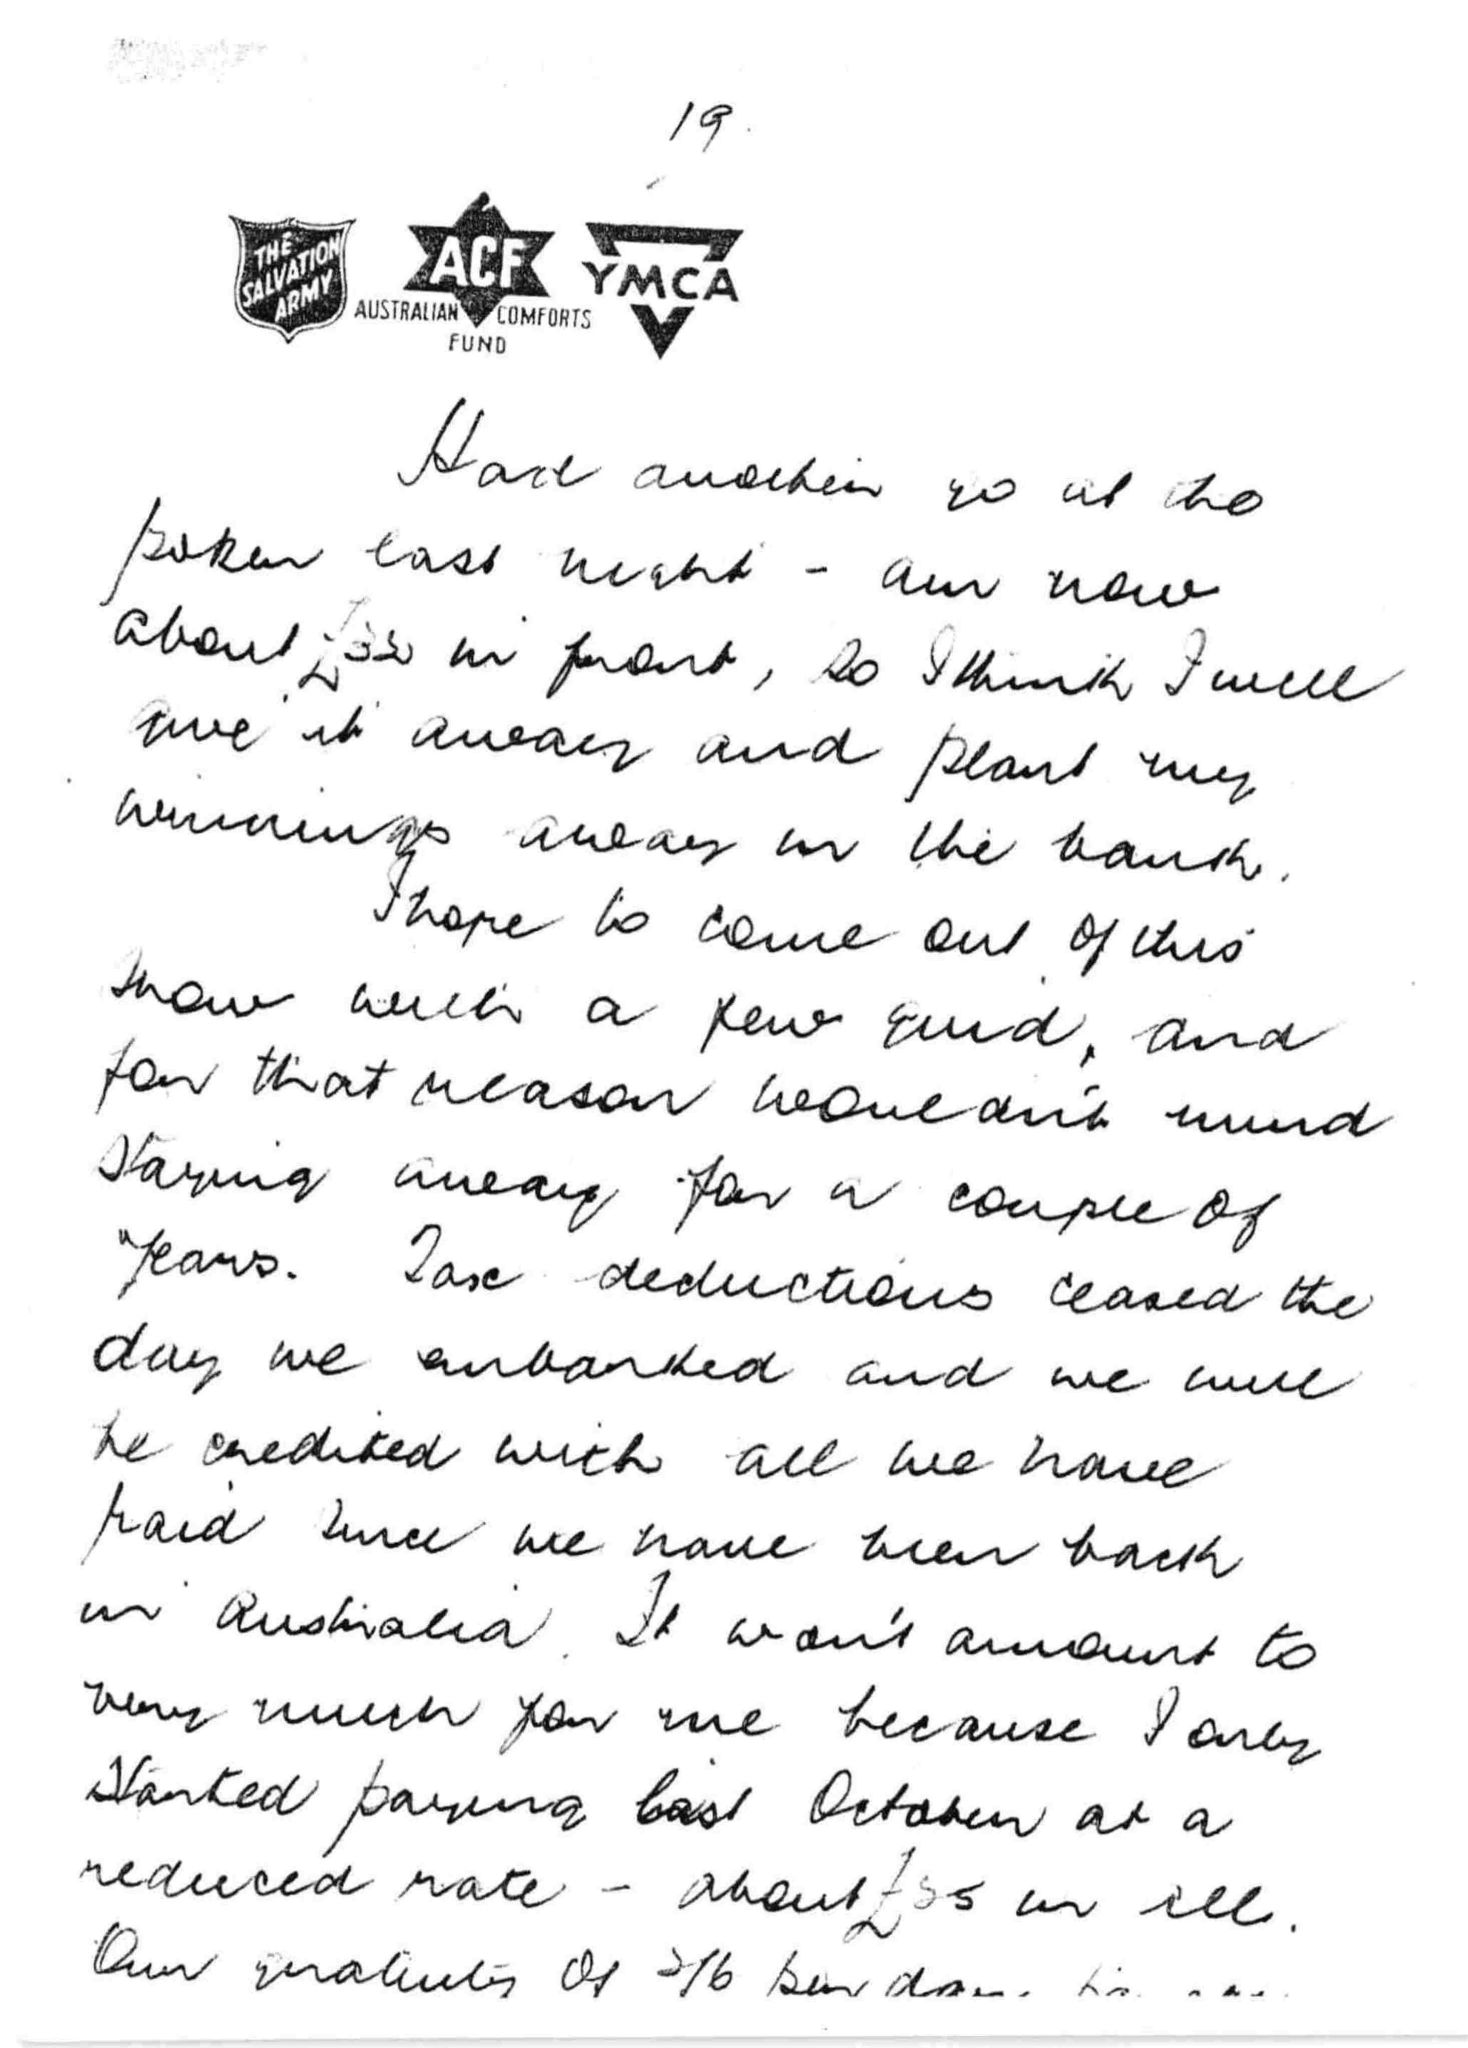 19.
THE SALVATION ARMY
ACF
AUSTRALIAN COMFORTS FUND
YMCA
Had another go at the
poker last night - am now
about £32 in front, so I think I will
give it away and plant my
winnings away in the bank.
I hope to come out of this
show with a few quid, and
for that reason wouldn't mind
staying away for a couple of
years. Tax deductions ceased the
day we embarked and we will
be credited with all we have
paid since we have been back
in Australia. It won't amount to
very much for me because I only
started paying last October at a
reduced rate - about £35 in all.
Our gratuity of 2/6 per day